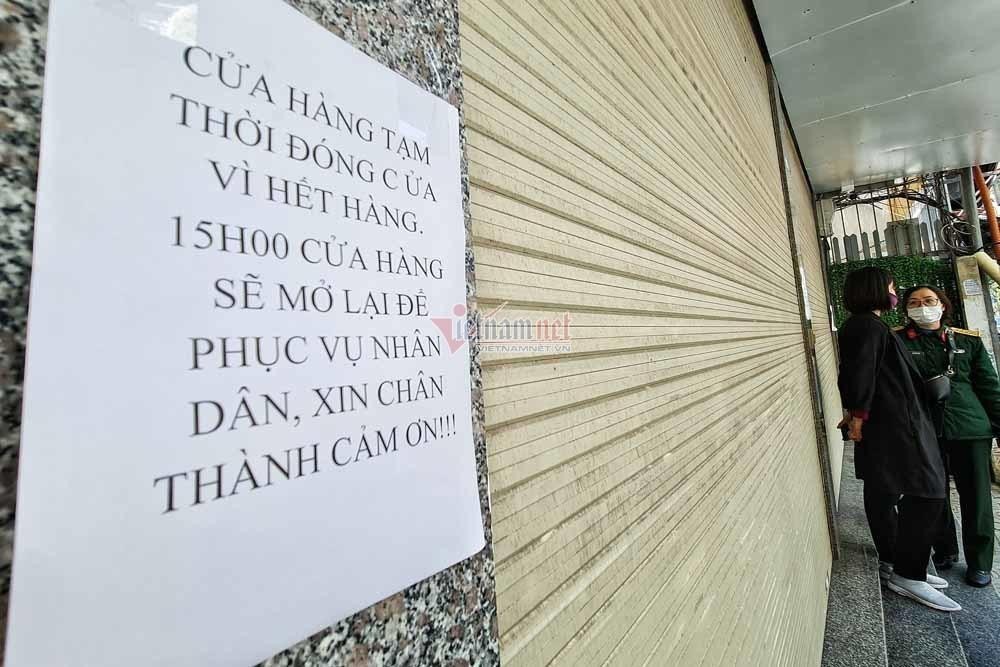 CỬA HÀNG TẠM
THỜI ĐÓNG C ỬA
VÌ HẾT HÀNG.
15H00 CỬA HÀNG
SẼ MỞ LẠI ĐỂ
PHỤC VỤ NHÂN
DÂN, XIN CHÂN
THÀNH CẢM ƠN!!!
Vietnamnet
VIETNAMNET.VN